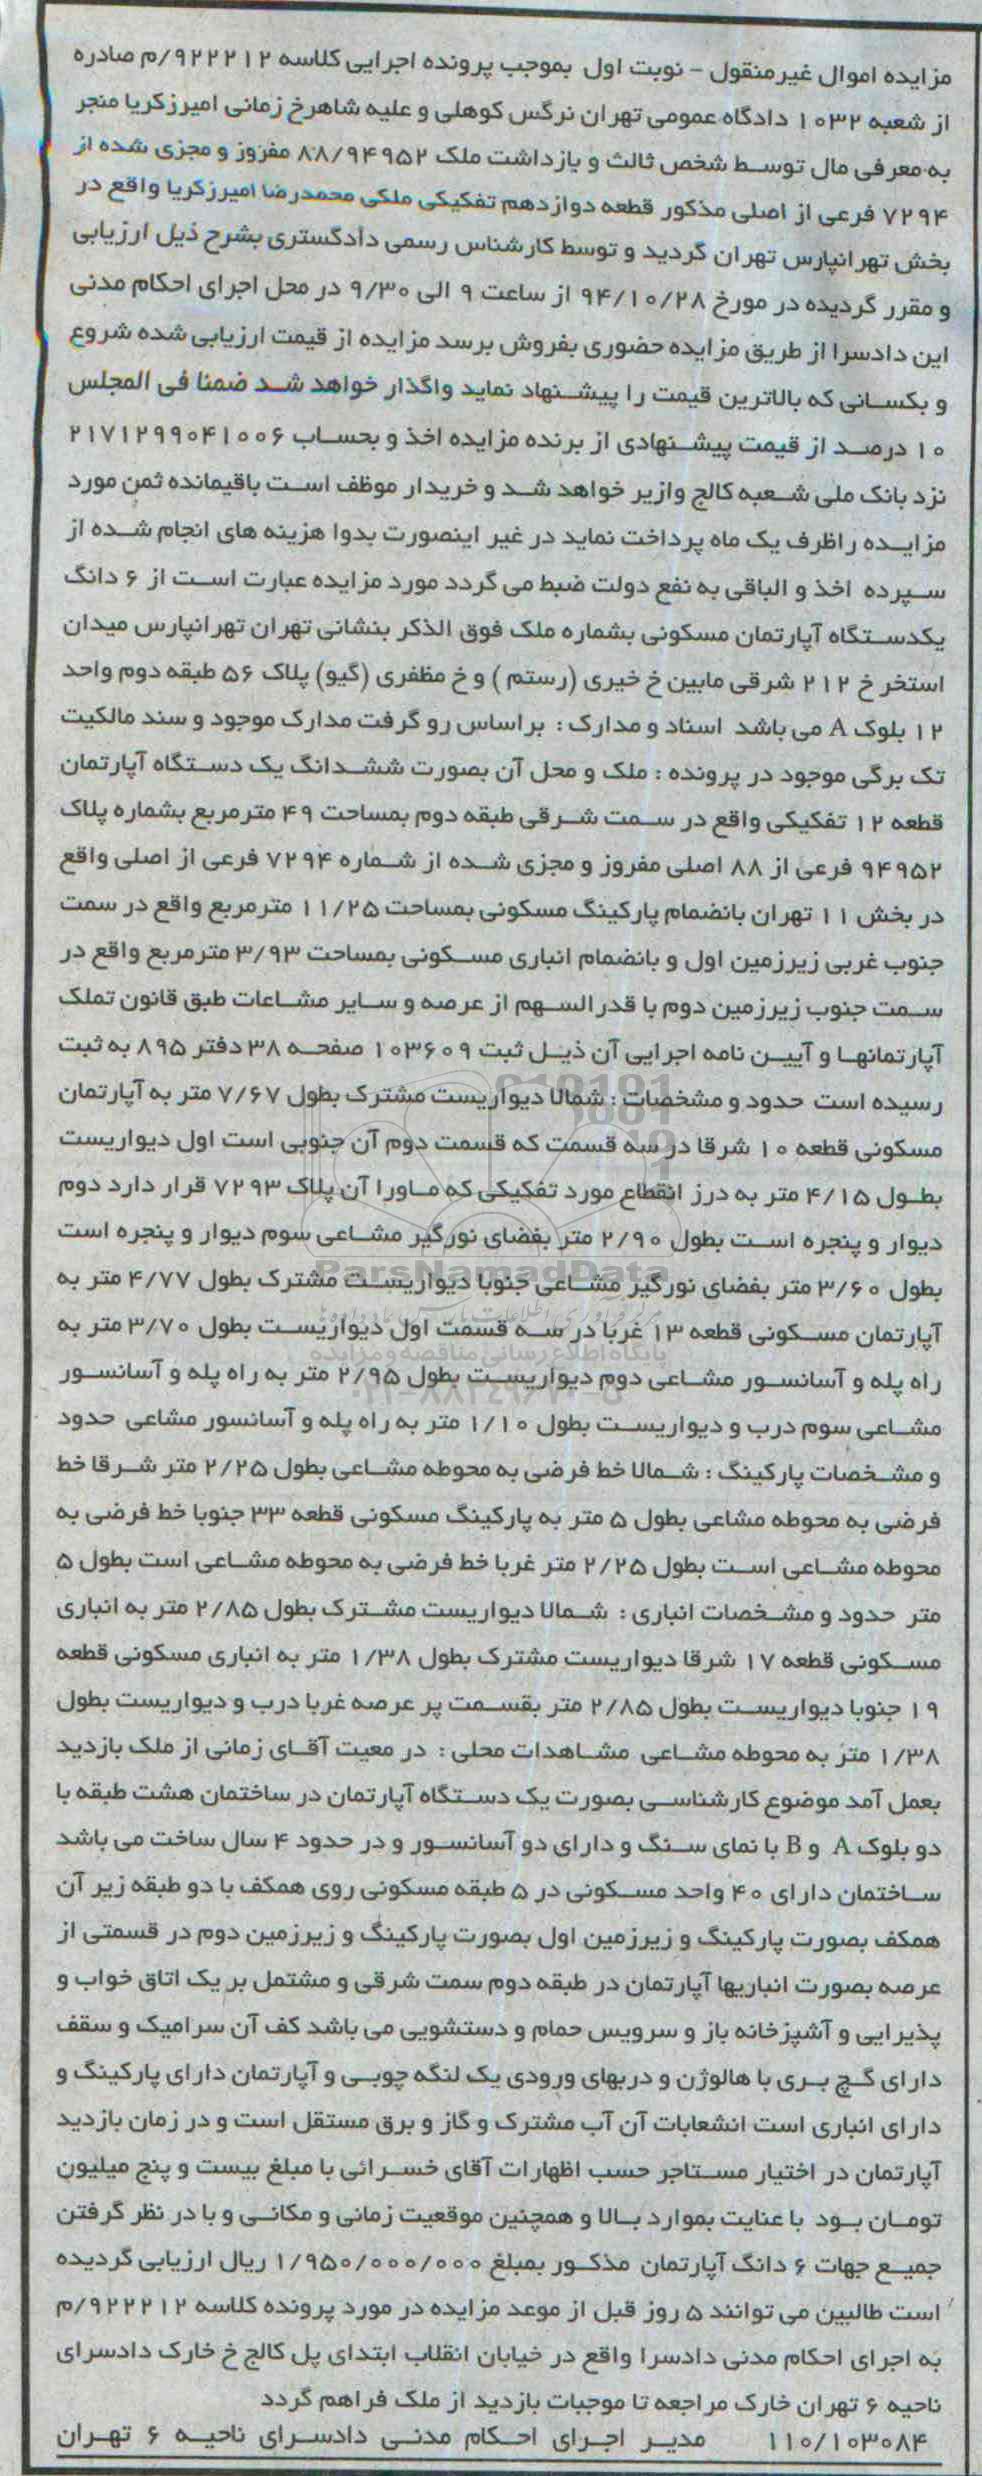 مزایده اموال غیرمنقول - نوبت اول بموجب پرونده اجرایی کلاسه ۹۲۲۲۱۲/م صادره
از شعبه ۱۰۳۲ دادگاه عمومی تهران نرگس کوهلی و علیه شاهرخ زمانی امیرزکریا منجر
به معرفی مال توسط شخص ثالث و بازداشت ملک ۸۸/۹۴۹۵۲ مفروز و مجزی شده از
۷۲۹۴ فرعی از اصلی مذکور قطعه دوازدهم تفکیکی ملکی محمدرضا امیرزکریا واقع در
بخش تهرانپارس تهران گردید و توسط کارشناس رسمی دادگستری بشرح ذیل ارزیابی
و مقرر گردیده در مورخ ۹۴/۱۰/۲۸ از ساعت ۹ الی ۹/۳۰ در محل اجرای احکام مدنی
این دادسرا از طریق مزایده حضوری بفروش برسد مزایده از قیمت ارزیابی شده شروع
و بکسانی که بالاترین قیمت را پیشنهاد نماید واگذار خواهد شد ضمنا فی المجلس
۱۰ درصد از قیمت پیشنهادی از برنده مزایده اخذ و بحساب ۲۱۷۱۲۹۹۰۴۱۰۰۶
نزد بانک ملی شعبه کالج وازیر خواهد شد و خریدار موظف است باقیمانده ثمن مورد
مزایده راظرف یک ماه پرداخت نماید در غیر اینصورت بدوا هزینه های انجام شده از
سپرده اخذ و الباقی به نفع دولت ضبط می گردد مورد مزایده عبارت است از ۶ دانگ
یکدستگاه آپارتمان مسکونی بشماره ملک فوق الذکر بنشانی تهران تهرانپارس میدان
استخر خ ۲۱۲ شرقی مابین خ خیری (رستم) و خ مظفری (گیو) پلاک ۵۶ طبقه دوم واحد
۱۲ بلوک A می باشد اسناد و مدارک : براساس رو گرفت مدارک موجود و سند مالکیت
تک برگی موجود در پرونده : ملک و محل آن بصورت ششدانگ یک دستگاه آپارتمان
قطعه ۱۲ تفکیکی واقع در سمت شرقی طبقه دوم بمساحت ۴۹ مترمربع بشماره پلاک
۹۴۹۵۲ فرعی از ۸۸ اصلی مفروز و مجزی شده از شماره ۷۲۹۴ فرعی از اصلی واقع
در بخش ۱۱ تهران بانضمام پارکینگ مسکونی بمساحت ۱۱/۲۵ مترمربع واقع در سمت
جنوب غربی زیرزمین اول و بانضمام انباری مسکونی بمساحت ۳/۹۳ مترمربع واقع در
سمت جنوب زیرزمین دوم با قدرالسهم از عرصه و سایر مشاعات طبق قانون تملک
آپارتمانها و آیین نامه اجرایی آن ذیل ثبت ۱۰۳۶۰۹ صفحه ۳۸ دفتر ۸۹۵ به ثبت
رسیده است حدود و مشخصات : شمالا دیواریست مشترک بطول ۷/۶۷ متر به آپارتمان
مسکونی قطعه ۱۰ شرقا در سه قسمت که قسمت دوم آن جنوبی است اول دیواریست
بطول ۴/۱۵ متر به درز انقطاع مورد تفکیکی که ماورا آن پلاک ۷۲۹۳ قرار دارد دوم
دیوار و پنجره است بطول ۲/۹۰ متر بفضای نورگیر مشاعی سوم دیوار و پنجره است
ParsNamadData
بطول ۳/۶۰ متر بفضای نورگیر مشاعی جنوبا دیواریست مشترک بطول ۴/۷۷ متر به
آپارتمان مسکونی قطعه ۱۳ غربا در سه قسمت اول دیواریست بطول ۳/۷۰ متر به
پایگاه اطلاع رسانی مناقصه و مزایده
راه پله و آسانسور مشاعی دوم دیواریست بطول ۲/۹۵ متر به راه پله و آسانسور
مشاعی سوم درب و دیواریست بطول ۱/۱۰ متر به راه پله و آسانسور مشاعی حدود
و مشخصات پارکینگ : شمالا خط فرضی به محوطه مشاعی بطول ۲/۲۵ متر شرقا خط
فرضی به محوطه مشاعی بطول ۵ متر به پارکینگ مسکونی قطعه ۳۳ جنوبا خط فرضی به
محوطه مشاعی است بطول ۲/۲۵ متر غربا خط فرضی به محوطه مشاعی است بطول ۵
متر حدود و مشخصات انباری : شمالا دیواریست مشترک بطول ۲/۸۵ متر به انباری
مسکونی قطعه ۱۷ شرقا دیواریست مشترک بطول ۱/۳۸ متر به انباری مسکونی قطعه
۱۹ جنوبا دیواریست بطول ۲/۸۵ متر بقسمت پر عرصه غربا درب و دیواریست بطول
۱/۳۸ متر به محوطه مشاعی مشاهدات محلی : در معیت آقای زمانی از ملک بازدید
بعمل آمد موضوع کارشناسی بصورت یک دستگاه آپارتمان در ساختمان هشت طبقه با
دو بلوک A و B با نمای سنگ و دارای دو آسانسور و در حدود ۴ سال ساخت می باشد
ساختمان دارای ۴۰ واحد مسکونی در ۵ طبقه مسکونی روی همکف با دو طبقه زیر آن
همکف بصورت پارکینگ و زیرزمین اول بصورت پارکینگ و زیرزمین دوم در قسمتی از
عرصه بصورت انباریها آپارتمان در طبقه دوم سمت شرقی و مشتمل بر یک اتاق خواب و
پذیرایی و آشپزخانه باز و سرویس حمام و دستشویی می باشد کف آن سرامیک و سقف
دارای گچ بری با هالوژن و دربهای ورودی یک لنگه چوبی و آپارتمان دارای پارکینگ و
دارای انباری است انشعابات آن آب مشترک و گاز و برق مستقل است و در زمان بازدید
آپارتمان در اختیار مستاجر حسب اظهارات آقای خسرائی با مبلغ بیست و پنج میلیون
تومان بود با عنایت بموارد بالا و همچنین موقعیت زمانی و مکانی و با در نظر گرفتن
جمیع جهات ۶ دانگ آپارتمان مذکور بمبلغ ۱/۹۵۰/۰۰۰/۰۰۰ ریال ارزیابی گردیده
است طالبین می توانند ۵ روز قبل از موعد مزایده در مورد پرونده کلاسه ۹۲۲۲۱۲/م
به اجرای احکام مدنی دادسرا واقع در خیابان انقلاب ابتدای پل کالج خ خارک دادسرای
ناحیه ۶ تهران خارک مراجعه تا موجبات بازدید از ملک فراهم گردد
۱۱۰/۱۰۳۰۸۴ مدیر اجرای احکام مدنی دادسرای ناحیه ۶ تهران